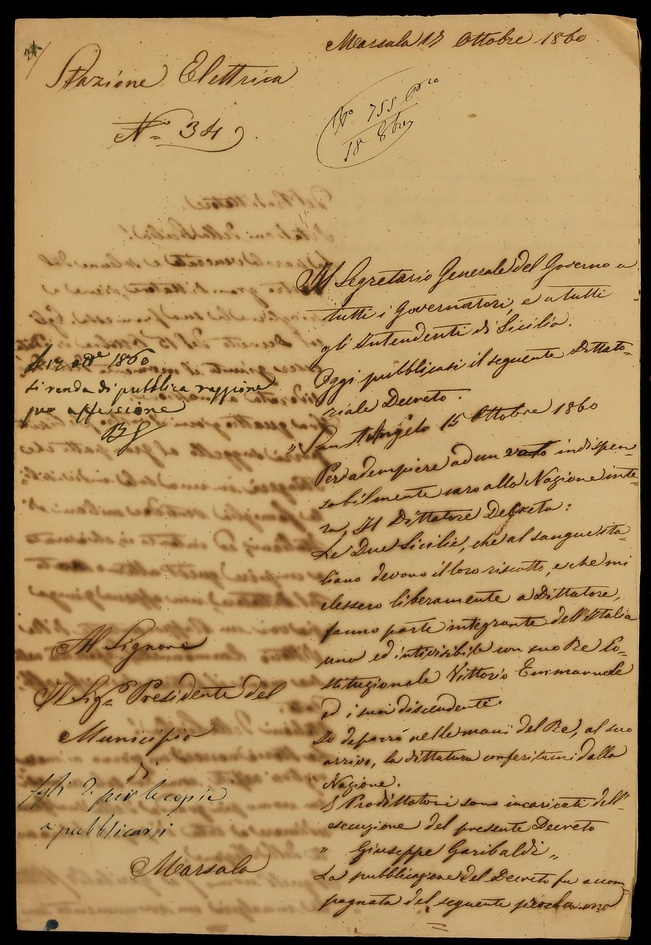 Marsala 17 Ottobre 1860
Stazione Elettrica
N.º 34
Nº 755
18 8bre
Il Segretario Generale del Governo a
tutti i Governatori, e a tutti
gli Intendenti di Sicilia.
Oggi pubblicasi il seguente Dittato-
riale Decreto.
" Sant'Angelo 15 Ottobre 1860
Per adempiere ad un voto indispen-
sabilmente caro alla Nazione inte-
ra, Il Dittatore Decreta:
Le Due Sicilie, che al sangue ita-
liano devono il loro riscatto, e che mi
elessero liberamente a Dittatore,
fanno parte integrante dell'Italia
una ed indivisibile con suo Re Co-
stituzionale Vittorio Emmanuele
ed i suoi discendenti.
Io deporrò nelle mani del Re, al suo
arrivo, la dittatura conferitami dalla
Nazione.
I Prodittatori sono incaricati dell'
esecuzione del presente Decreto
" Giuseppe Garibaldi "
La pubblicazione del Decreto fu accom-
pagnata del seguente proclama
1860
Si renda di pubblica raggione
per affissione
Al Signore
Il Sig.r Presidente del
Municipio
di
Marsala
per le copie
a pubblicarsi